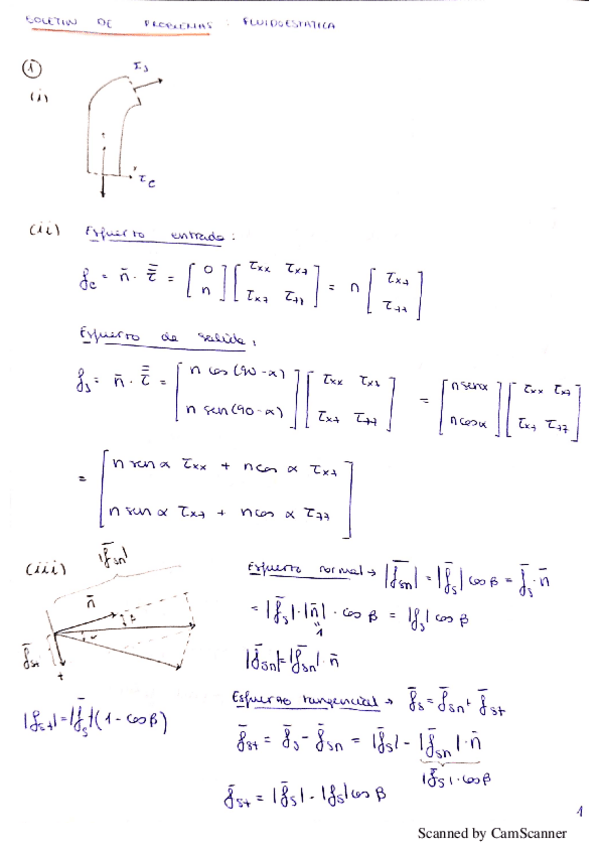 BOLETIN DE PROBLEMAS : FLUIDOESTATICA
1
(i)
τs
τe
(ii) Esfuerzo entrada :
f̄e = n̄ · τ̿ = [0 n] [τxx τxz τxz τzz] = n [τxz τzz]
Esfuerzo de salida :
f̄s = n̄ · τ̿ = [n cos(90-α) n sen(90-α)] [τxx τxz τxz τzz] = [n senα n cosα] [τxx τxz τxz τzz]
= [n sen α τxx + n cos α τxz
n sen α τxz + n cos α τzz]
(iii) |f̄sn|
n̄
f̄sn
t
|f̄st| = |f̄s|(1 - cos β)
Esfuerzo normal → |f̄sn| = |f̄s| cos β = f̄s · n̄
= |f̄s| · |n̄| · cos β = |fs| cos β
1
|f̄sn| = |f̄sn| · n̄
Esfuerzo tangencial → f̄s = f̄sn + f̄st
f̄st = f̄s - f̄sn = |f̄s| - |f̄sn| · n̄
|f̄s| · cos β
f̄st = |f̄s| - |fs| cos β
1
Scanned by CamScanner